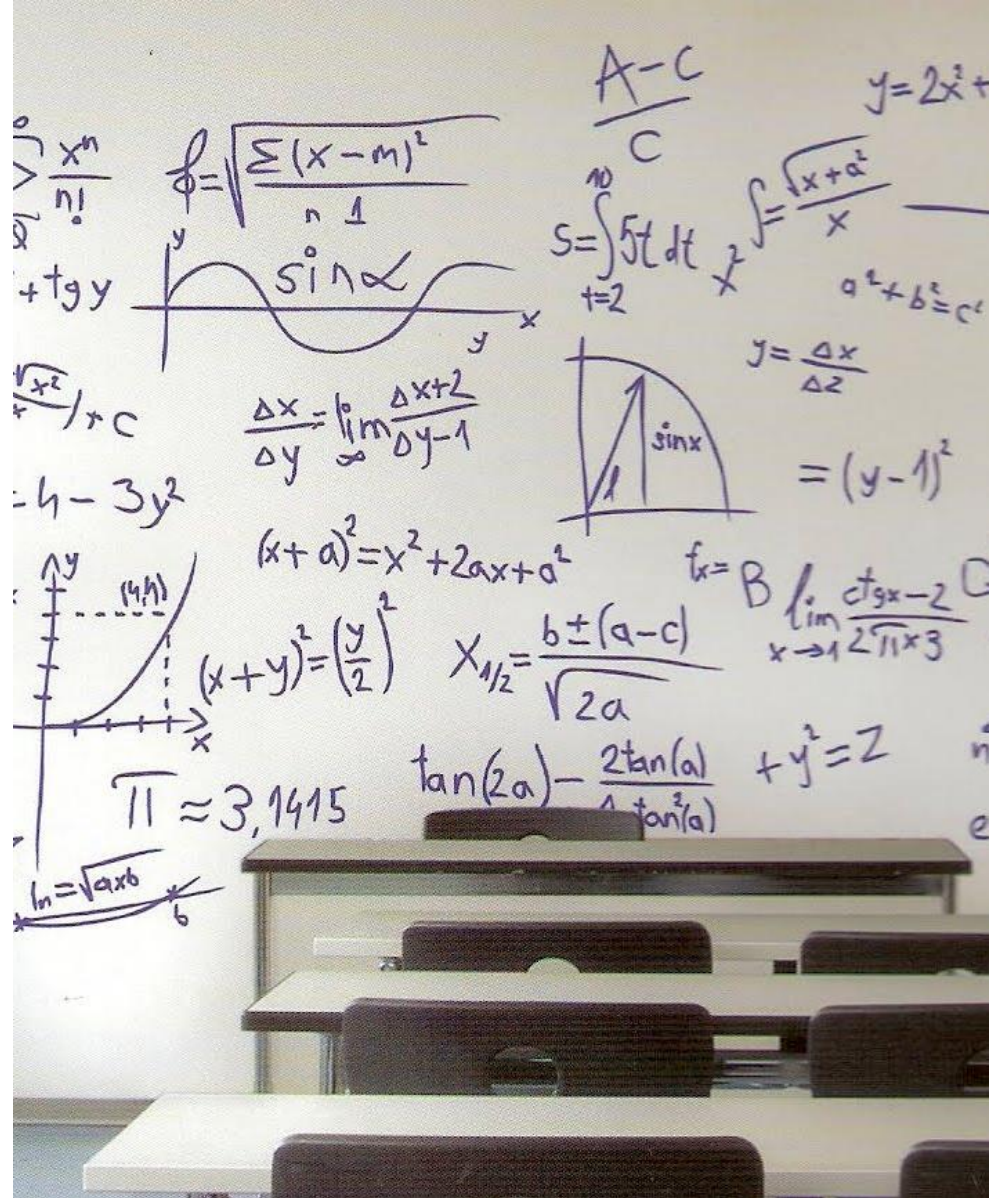 A-C
C
y=2x²+
xⁿ
n!
=√Σ(x-m)²
n 1
10
S=∫5t dt
t=2
x²
∫=√x+a²
x
a²+b²=c²
+tgy
y
sinα
y
x
y=Δx
Δz
√x²
x
)+C
Δx = lim Δx+2
Δy ∞ Δy-1
sinx
=(y-1)²
-4-3y²
(x+a)²=x²+2ax+a²
fx=
B
lim ctgx-2
x→1 2π×3
y
(4,4)
x
(x+y)²=(y/2)²
X₁/₂=b±(a-c)
√2a
π≈3,1415
tan(2a)-2tan(a)
tan²(a)
+y²=Z
=√axb
b